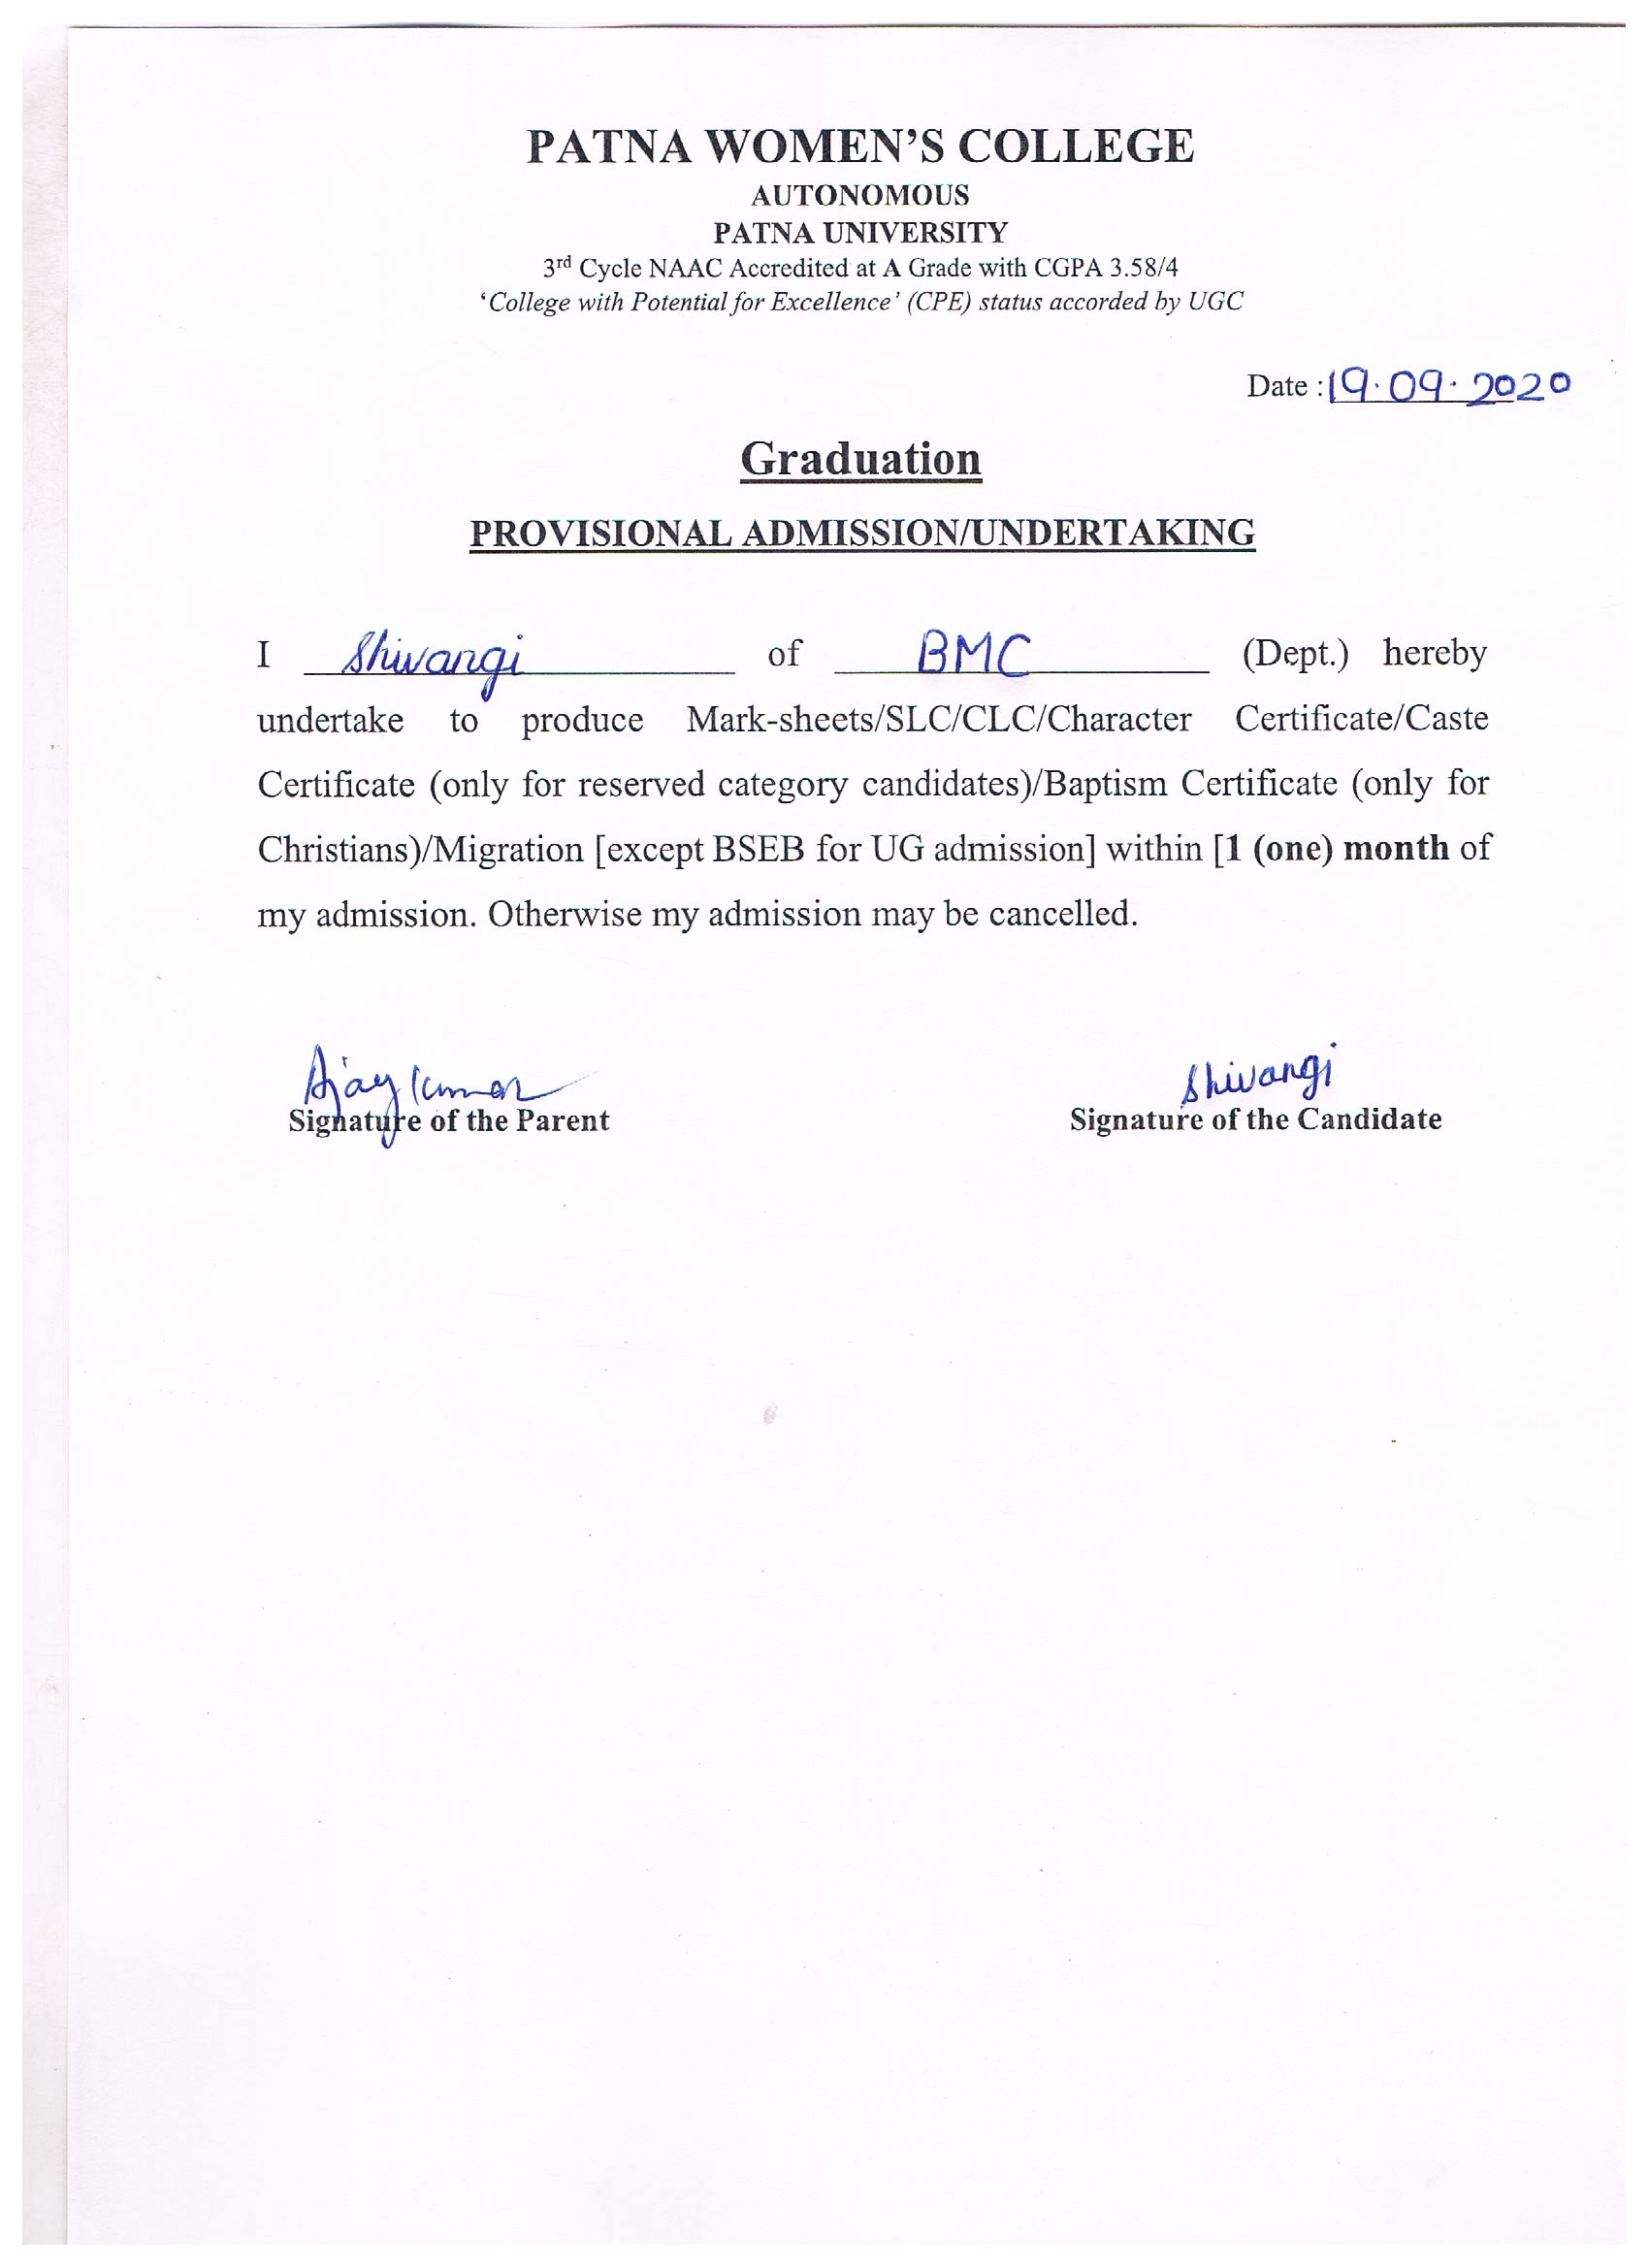 PATNA WOMEN'S COLLEGE
AUTONOMOUS
PATNA UNIVERSITY
3rd Cycle NAAC Accredited at A Grade with CGPA 3.58/4
'College with Potential for Excellence' (CPE) status accorded by UGC
Date : 19.09.2020
Graduation
PROVISIONAL ADMISSION/UNDERTAKING
I Shivangi of BMC (Dept.) hereby
undertake to produce Mark-sheets/SLC/CLC/Character Certificate/Caste
Certificate (only for reserved category candidates)/Baptism Certificate (only for
Christians)/Migration [except BSEB for UG admission] within [1 (one) month of
my admission. Otherwise my admission may be cancelled.
Ajay Kumar Shivangi
Signature of the Parent Signature of the Candidate